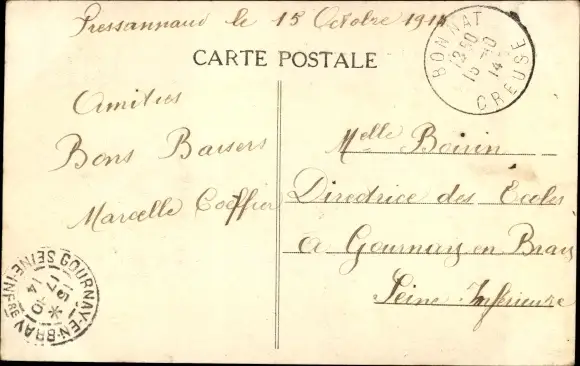 Pressannaud le 15 Octobre 1914
CARTE POSTALE
BONNAT
13 50
15 -10
14
CREUSE
Amitiés
Bons Baisers
Marcelle Coeffier
Melle Boivin
Directrice des Ecoles
à Gournay en Bray
Seine Inférieure
GOURNAY-EN-BRAY
SEINE-INFRE
15
17 -10
14